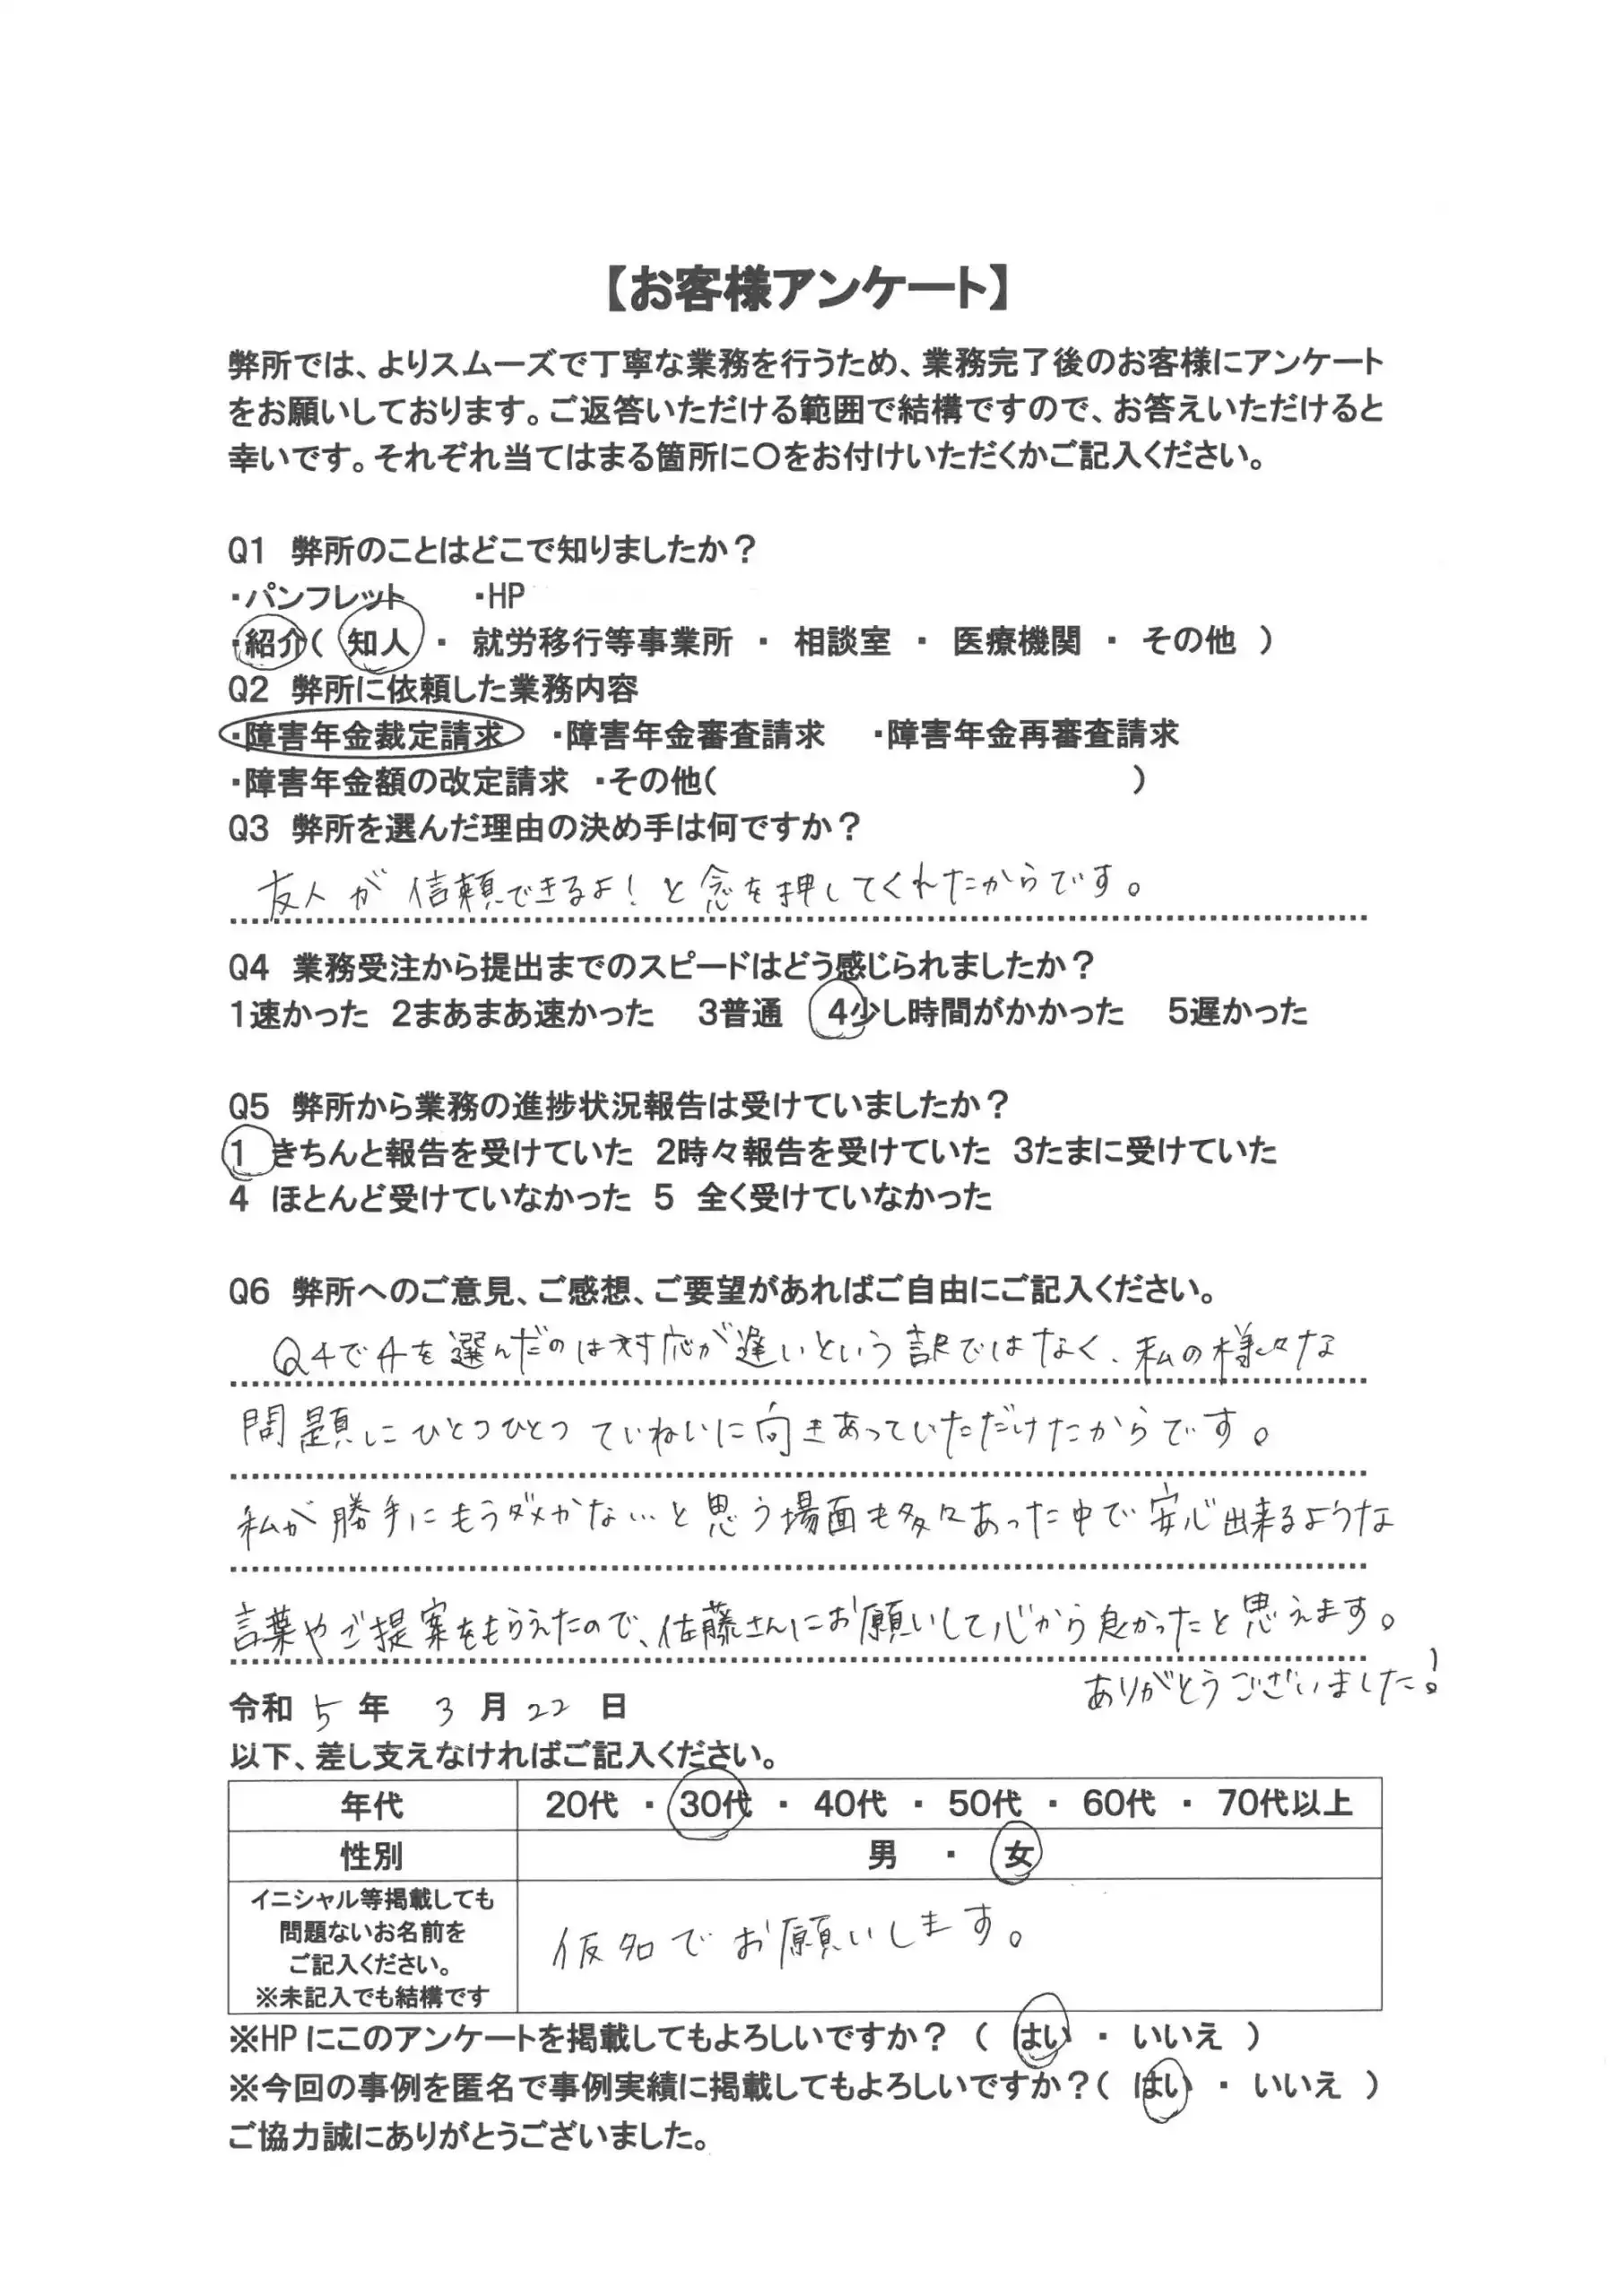 【お客様アンケート】
弊所では、よりスムーズで丁寧な業務を行うため、業務完了後のお客様にアンケート
をお願いしております。ご返答いただける範囲で結構ですので、お答えいただけると
幸いです。それぞれ当てはまる箇所に〇をお付けいただくかご記入ください。
Q1 弊所のことはどこで知りましたか？
・パンフレット ・HP
・紹介( 知人 ・ 就労移行等事業所 ・ 相談室 ・ 医療機関 ・ その他 )
Q2 弊所に依頼した業務内容
・障害年金裁定請求 ・障害年金審査請求 ・障害年金再審査請求
・障害年金額の改定請求 ・その他( )
Q3 弊所を選んだ理由の決め手は何ですか？
友人が信頼できるよ！と念を押してくれたからです。
Q4 業務受注から提出までのスピードはどう感じられましたか？
1速かった 2まあまあ速かった 3普通 4少し時間がかかった 5遅かった
Q5 弊所から業務の進捗状況報告は受けていましたか？
1 きちんと報告を受けていた 2時々報告を受けていた 3たまに受けていた
4 ほとんど受けていなかった 5 全く受けていなかった
Q6 弊所へのご意見、ご感想、ご要望があればご自由にご記入ください。
Q4で4を選んだのは対応が遅いという訳ではなく、私の様々な
問題にひとつひとつていねいに向きあっていただけたからです。
私が勝手にもうダメかな…と思う場面も多々あった中で安心出来るような
言葉やご提案をもらえたので、佐藤さんにお願いして心から良かったと思えます。
ありがとうございました！
令和 5 年 3 月 22 日
以下、差し支えなければご記入ください。
年代 20代 ・ 30代 ・ 40代 ・ 50代 ・ 60代 ・ 70代以上
性別 男 ・ 女
イニシャル等掲載しても
問題ないお名前を
ご記入ください。
※未記入でも結構です
仮名でお願いします。
※HPにこのアンケートを掲載してもよろしいですか？ ( はい ・ いいえ )
※今回の事例を匿名で事例実績に掲載してもよろしいですか？( はい ・ いいえ )
ご協力誠にありがとうございました。